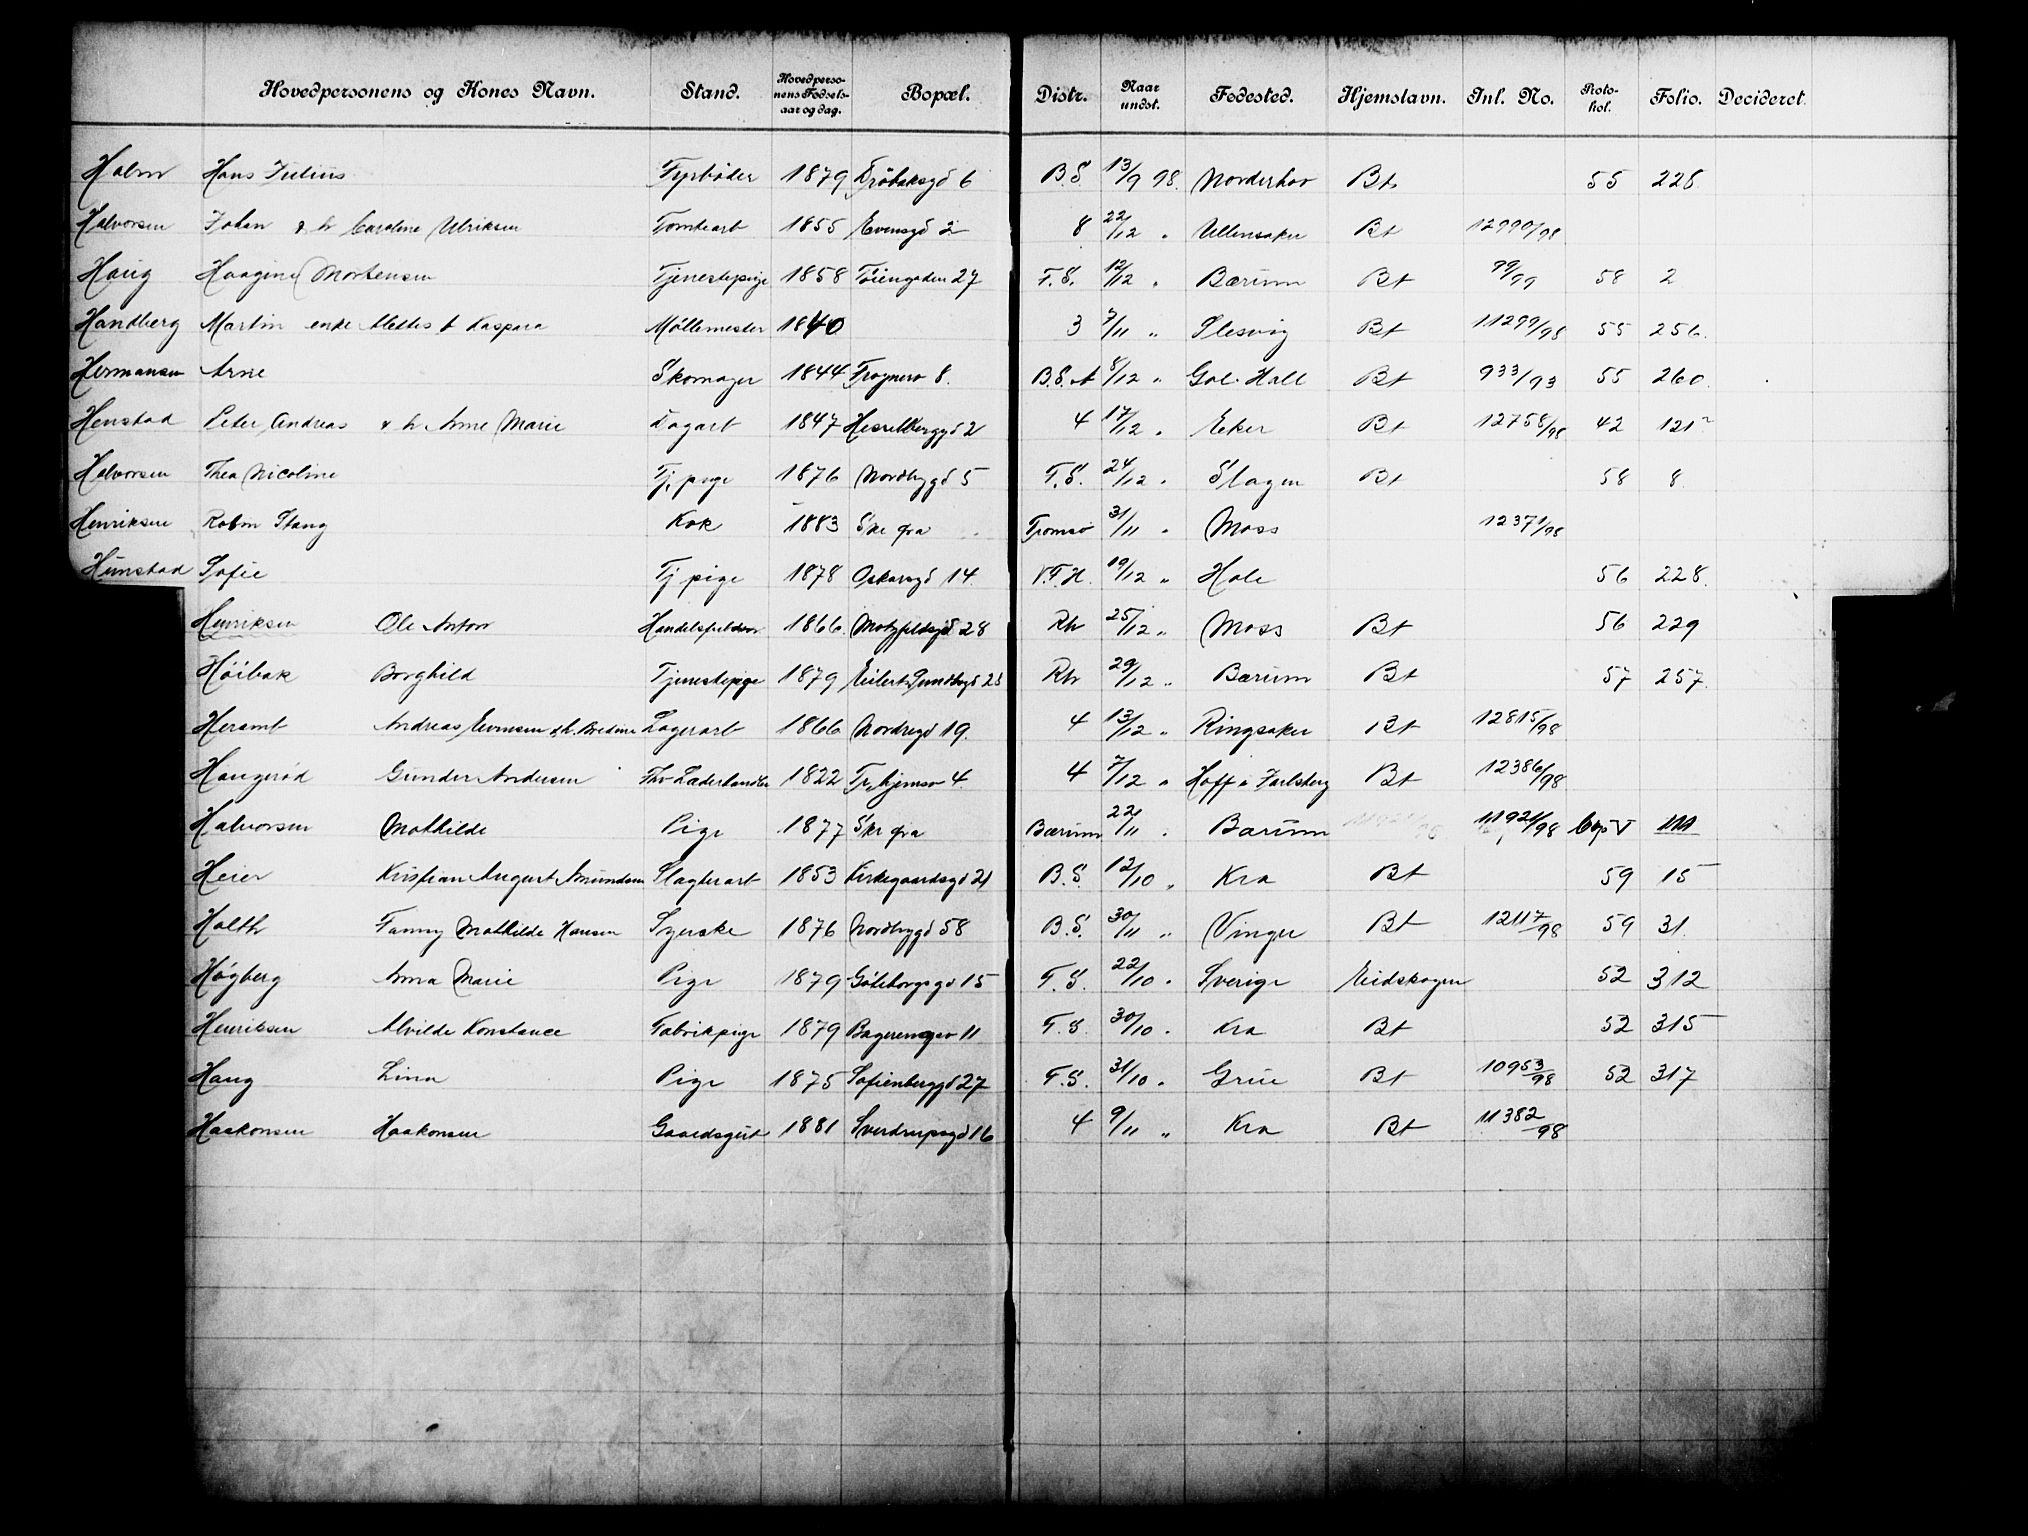 Hovedpersonens og Kones Navn. Stand. Hovedpersonens Fødselsaar og dag. Bopæl. Distr. Naar undst. Fødested. Hjemstavn. Inl. No. Protokol. Folio. Decideret.
Holm Hans Julius Fyrbøder 1879 Drøbaksgd 6 B.S. 13/9 98. Norderhov Bt. 55 228.
Halvorsen Johan & h Caroline Ulriksen Tomtearb 1855 Evensgd 2 8 22/12 " Ullensaker Bt 12990/98
Haug Haagine Mortensen Tjenestepige 1858 Tøiengaden 27 F.S. 12/12 " Bærum Bt 99/99 58 2
Handberg Martin enke Mettes f. Kaspara Møllemester 1840 3 7/11 " Slesvig Bt 11299/98 55 256.
Hermansen Arne Skomager 1844 Frognerv 8. B.S.A 8/12 " Gol. Hall Bt 933/93 55 260.
Henstad Peter Andreas & h. Anne Marie Dagarb 1847 Hesselberggd 2 4 17/12 " Eker Bt 12758/98 42 121
Halvorsen Thea Nicoline Tj. pige 1876 Nordbygd 5 F.S. 24/12 " Slagen Bt 58 8.
Henriksen Robm Stang Kok 1883 Ske fra Tromsø 31/11 " Moss 12371/98
Hunstad Sofie Tj pige 1878 Oskarsgd 14. V.F.H. 19/12 " Hole 56 228.
Henriksen Ole Anton 1866. Motzfeldsgd 28 Rh 25/12 " Moss Bt 56 229
Høibak Borghild Tjenestepige 1879 Eilert Sundtsgd 28 Rh 29/12 " Bærum Bt 57 257.
Heramb Andreas Evensen & h. Bredine Lagerarb 1866 Nordregd 19. 4 13/12 " Ringsaker Bt 12815/98
Haugerød Gunder Andersen Fhv Læderhandler 1822 Tr.hjemsv 4. 4 7/12 " Hoff i Jarlsberg Bt 12386/98
Halvorsen Mathilde Pige 1877 Ske fra Bærum 22/11 " Bærum 11921/98 Cop V 111
Heier Kristian August Amundsen Slagterarb 1853 Kirkegaardsgd 21 B.S. 12/10 " Kra Bt 59 15
Holth Fanny Mathilde Hansen Syerske 1876 Nordbygd 58 B.S. 30/11 " Vinger Bt 12117/98 59 31.
Høgberg Anna Marie Pige 1879 Gøteborgsgd 15 F.S. 22/10 " Sverige Eidskogen 52 312
Henriksen Alvilde Konstance Fabrikpige 1879 Bagerengsv 11 F.S. 30/10 " Kra Bt 52 315
Haug Lina Pige 1875 Sofienberggd 27 F.S. 31/10 " Grue Bt 10953/98 52 317
Haakonsen Haakonsen Gaardsgut 1881 Sverdrupsgd 16 4 9/11 " Kra Bt 11382/98